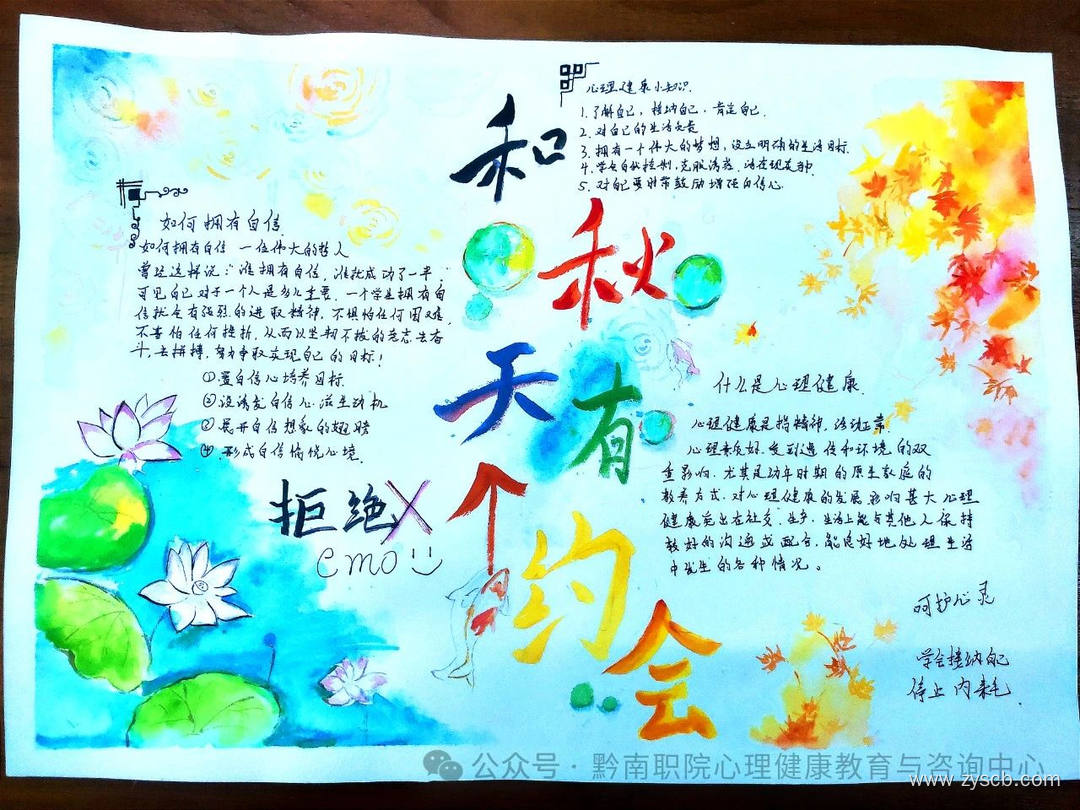 和秋天有个约会
心理健康小知识
1.了解自己,接纳自己,肯定自己.
2.对自己的生活负责
3.拥有一个伟大的梦想,设立明确的生活目标.
4.学会自我控制,克服诱惑,活在现实中
5.对自己要时常鼓励增强自信心
如何拥有自信
如何拥有自信 一位伟大的哲人
曾经这样说:"谁拥有自信,谁就成功了一半,
可见自己对于一个人是多么重要,一个学生拥有自
信就会有强烈的进取精神,不惧怕任何困难,
不害怕任何挫折,从而以坚韧不拔的意志去奋
斗,去拼搏,努力争取实现自己的目标!
①置自信心培养目标
③设诱发自信心滋生动机
②展开自信想象的翅膀
④形成自信愉悦心境
拒绝X
emo
什么是心理健康
心理健康是指精神、活动正常
心理素质好,受到遗传和环境的双
重影响.尤其是幼年时期的原生家庭的
教养方式,对心理健康的发展影响甚大心理
健康突出在社交、生产、生活上能与其他人保持
较好的沟通或配合,能良好地处理生活
中发生的各种情况。
呵护心灵
学会接纳自己
停止内耗
公众号·黔南职院心理健康教育与咨询中心
www.zyscb.com